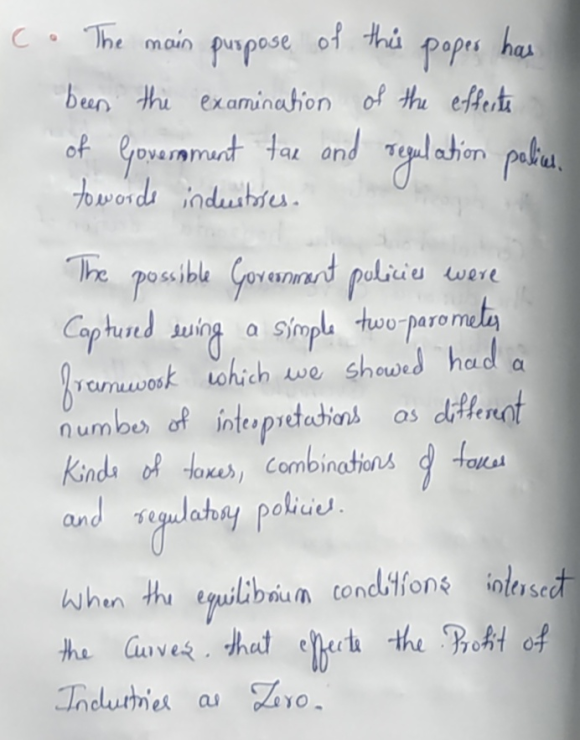 C. The main purpose of this paper has
been the examination of the effects
of Government tax and regulation policies.
towards industries.
The possible Government policies were
Captured using a simple two-parameter
framework which we showed had a
number of interpretations as different
Kinds of taxes, combinations of taxes
and regulatory policies.
When the equilibrium conditions intersect
the Curves. that effects the Profit of
Industries as Zero.